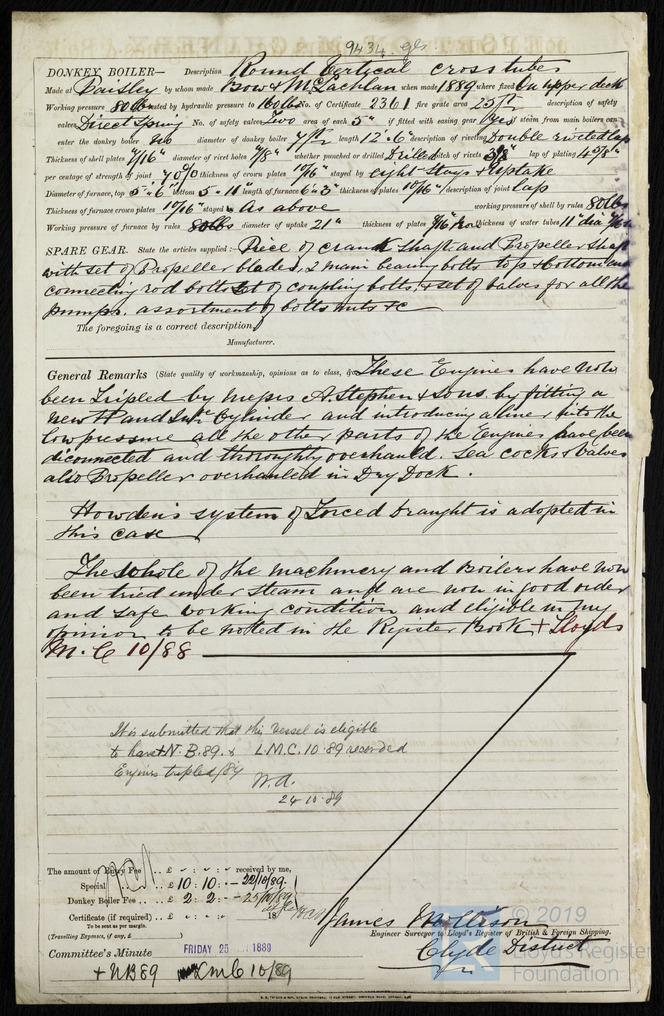 9434 gls
DONKEY BOILER— Description Round Vertical cross tubes
Made at Paisley by whom made Bow & McLachlan when made 1889 where fixed On upper deck
Working pressure 80lbs tested by hydraulic pressure to 160lbs No. of Certificate 2361 fire grate area 25 ft description of safety
valves Direct Spring No. of safety valves Two area of each 5" if fitted with easing gear Yes if steam from main boilers can
enter the donkey boiler No diameter of donkey boiler 7 ft length 12' 6" description of riveting Double riveted lap
Thickness of shell plates 7/16" diameter of rivet holes 7/8" whether punched or drilled Drilled pitch of rivets lap of plating 4 5/8"
per centage of strength of joint 70% thickness of crown plates 10/16" stayed by eight Stays & Uptake
Diameter of furnace, top 5' 6" bottom 5' 10" length of furnace 6' 3" thickness of plates 10/16" description of joint Lap
Thickness of furnace crown plates 10/16" stayed by As above working pressure of shell by rules 80lbs
Working pressure of furnace by rules 80lbs diameter of uptake 21" thickness of plates 7/16 thickness of water tubes 11" dia
SPARE GEAR. State the articles supplied:— Piece of crank shaft and Propeller Shaft
with set of Propeller blades, 2 main bearing bolts top & bottom and
connecting rod bolts set of coupling bolts, & set of valves for all the
pumps. assortment of bolts nuts &c
The foregoing is a correct description,
Manufacturer.
General Remarks (State quality of workmanship, opinions as to class, &c. These Engines have now
been Tripled by Messrs A. Stephen & Sons by fitting a
new H and Intr Cylinder and introducing a liner into the
low pressure all the other parts of the Engines have been
disconnected and thoroughly overhauled. Sea cocks & valves
also Propeller overhauled in Dry Dock.
Howden's system of Forced Draught is adopted in
this case
The whole of the machinery and Boilers have now
been tried under steam and are now in good order
and safe working condition and eligible in my
opinion to be noted in the Register Book + Lloyds
M.C 10/88
It is submitted that this vessel is eligible
to have + N.B.89. & L.M.C. 10.89 recorded
Engines tripled /89
W.A.
24.10.89
The amount of Entry Fee .. £ - : - : - received by me,
Special .. £ 10 : 10 : - 22/10/89
Donkey Boiler Fee .. £ 2 : 2 : - 25/10/89
Certificate (if required) .. £ - : - : - 18
To be sent as per margin.
(Travelling Expenses, if any, £ )
James Mollison
Engineer Surveyor to Lloyd's Register of British & Foreign Shipping.
Clyde District
Committee's Minute FRIDAY 25 1889
+ NB89 LMC 10/89
© 2019
Lloyd's Register
Foundation